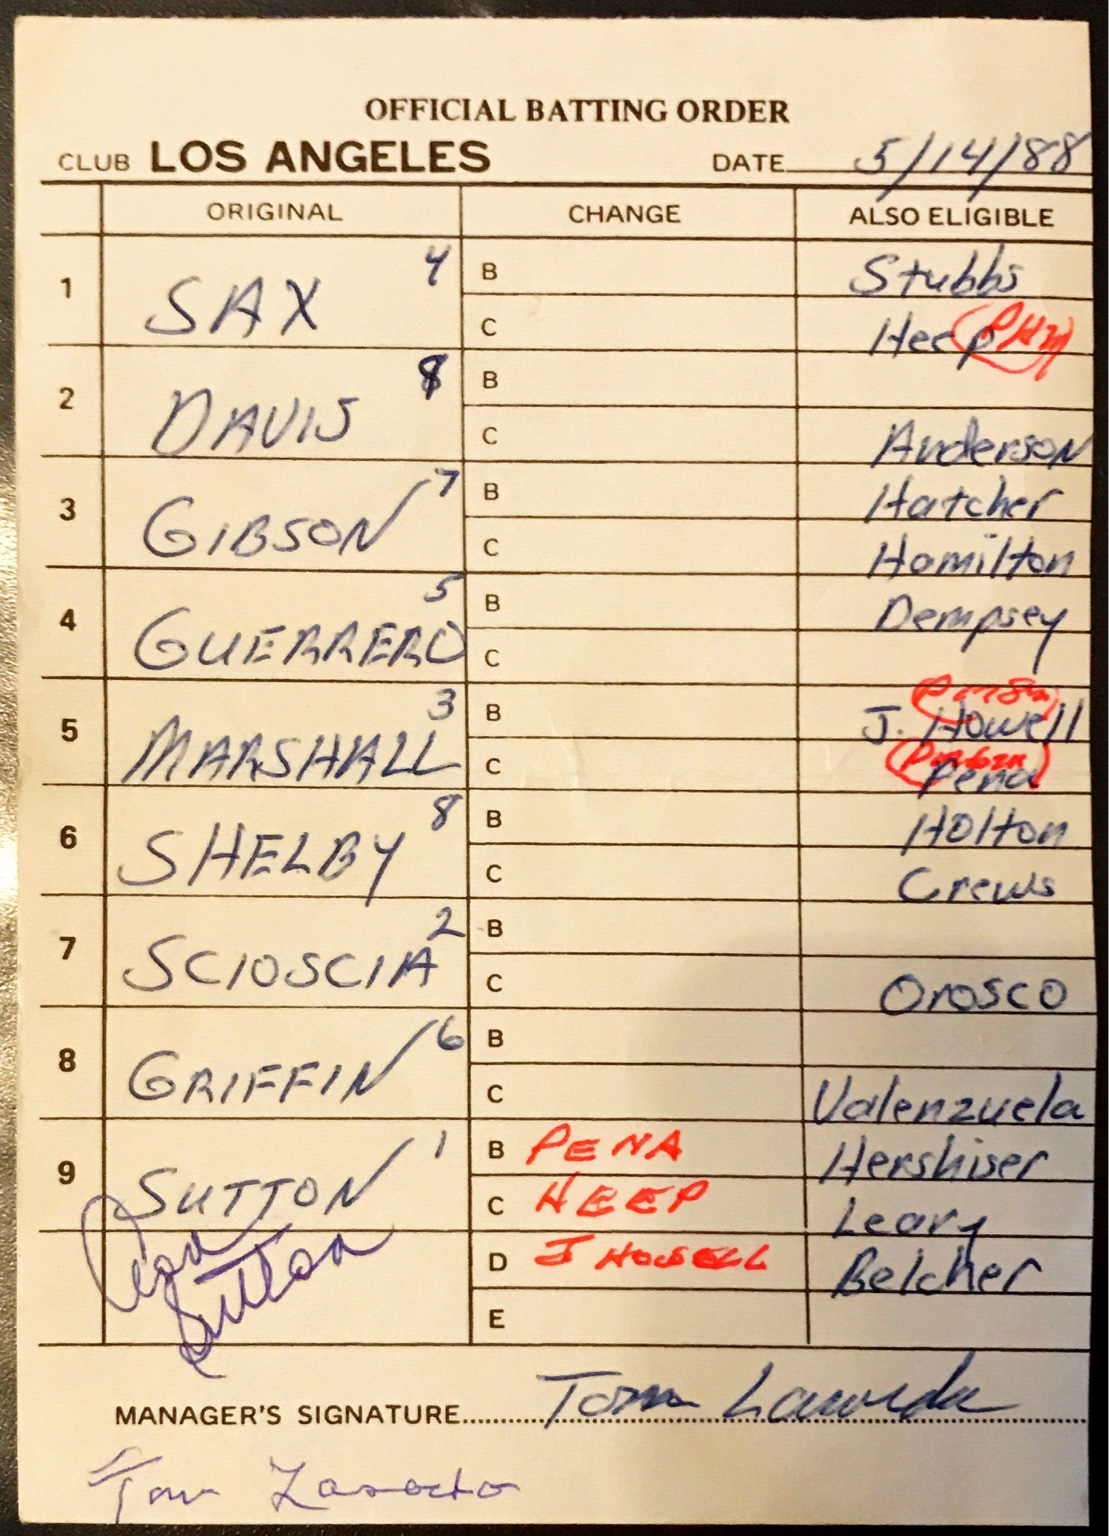 OFFICIAL BATTING ORDER
CLUB LOS ANGELES DATE 5/14/88
ORIGINAL CHANGE ALSO ELIGIBLE
1 SAX 4 B Stubbs
C Heep PH
2 DAVIS B
C Anderson
3 GIBSON 7 B Hatcher
C Hamilton
4 GUERRERO 5 B Dempsey
C
5 MARSHALL 3 B J. Howell
C Pena
6 SHELBY 8 B Holton
C Crews
7 SCIOSCIA 2 B
C Orosco
8 GRIFFIN 6 B
C Valenzuela
9 SUTTON 1 B PENA Hershiser
C HEEP Leary
Don Sutton D J HOWELL Belcher
E
MANAGER'S SIGNATURE Tom Lasorda
Tom Lasorda